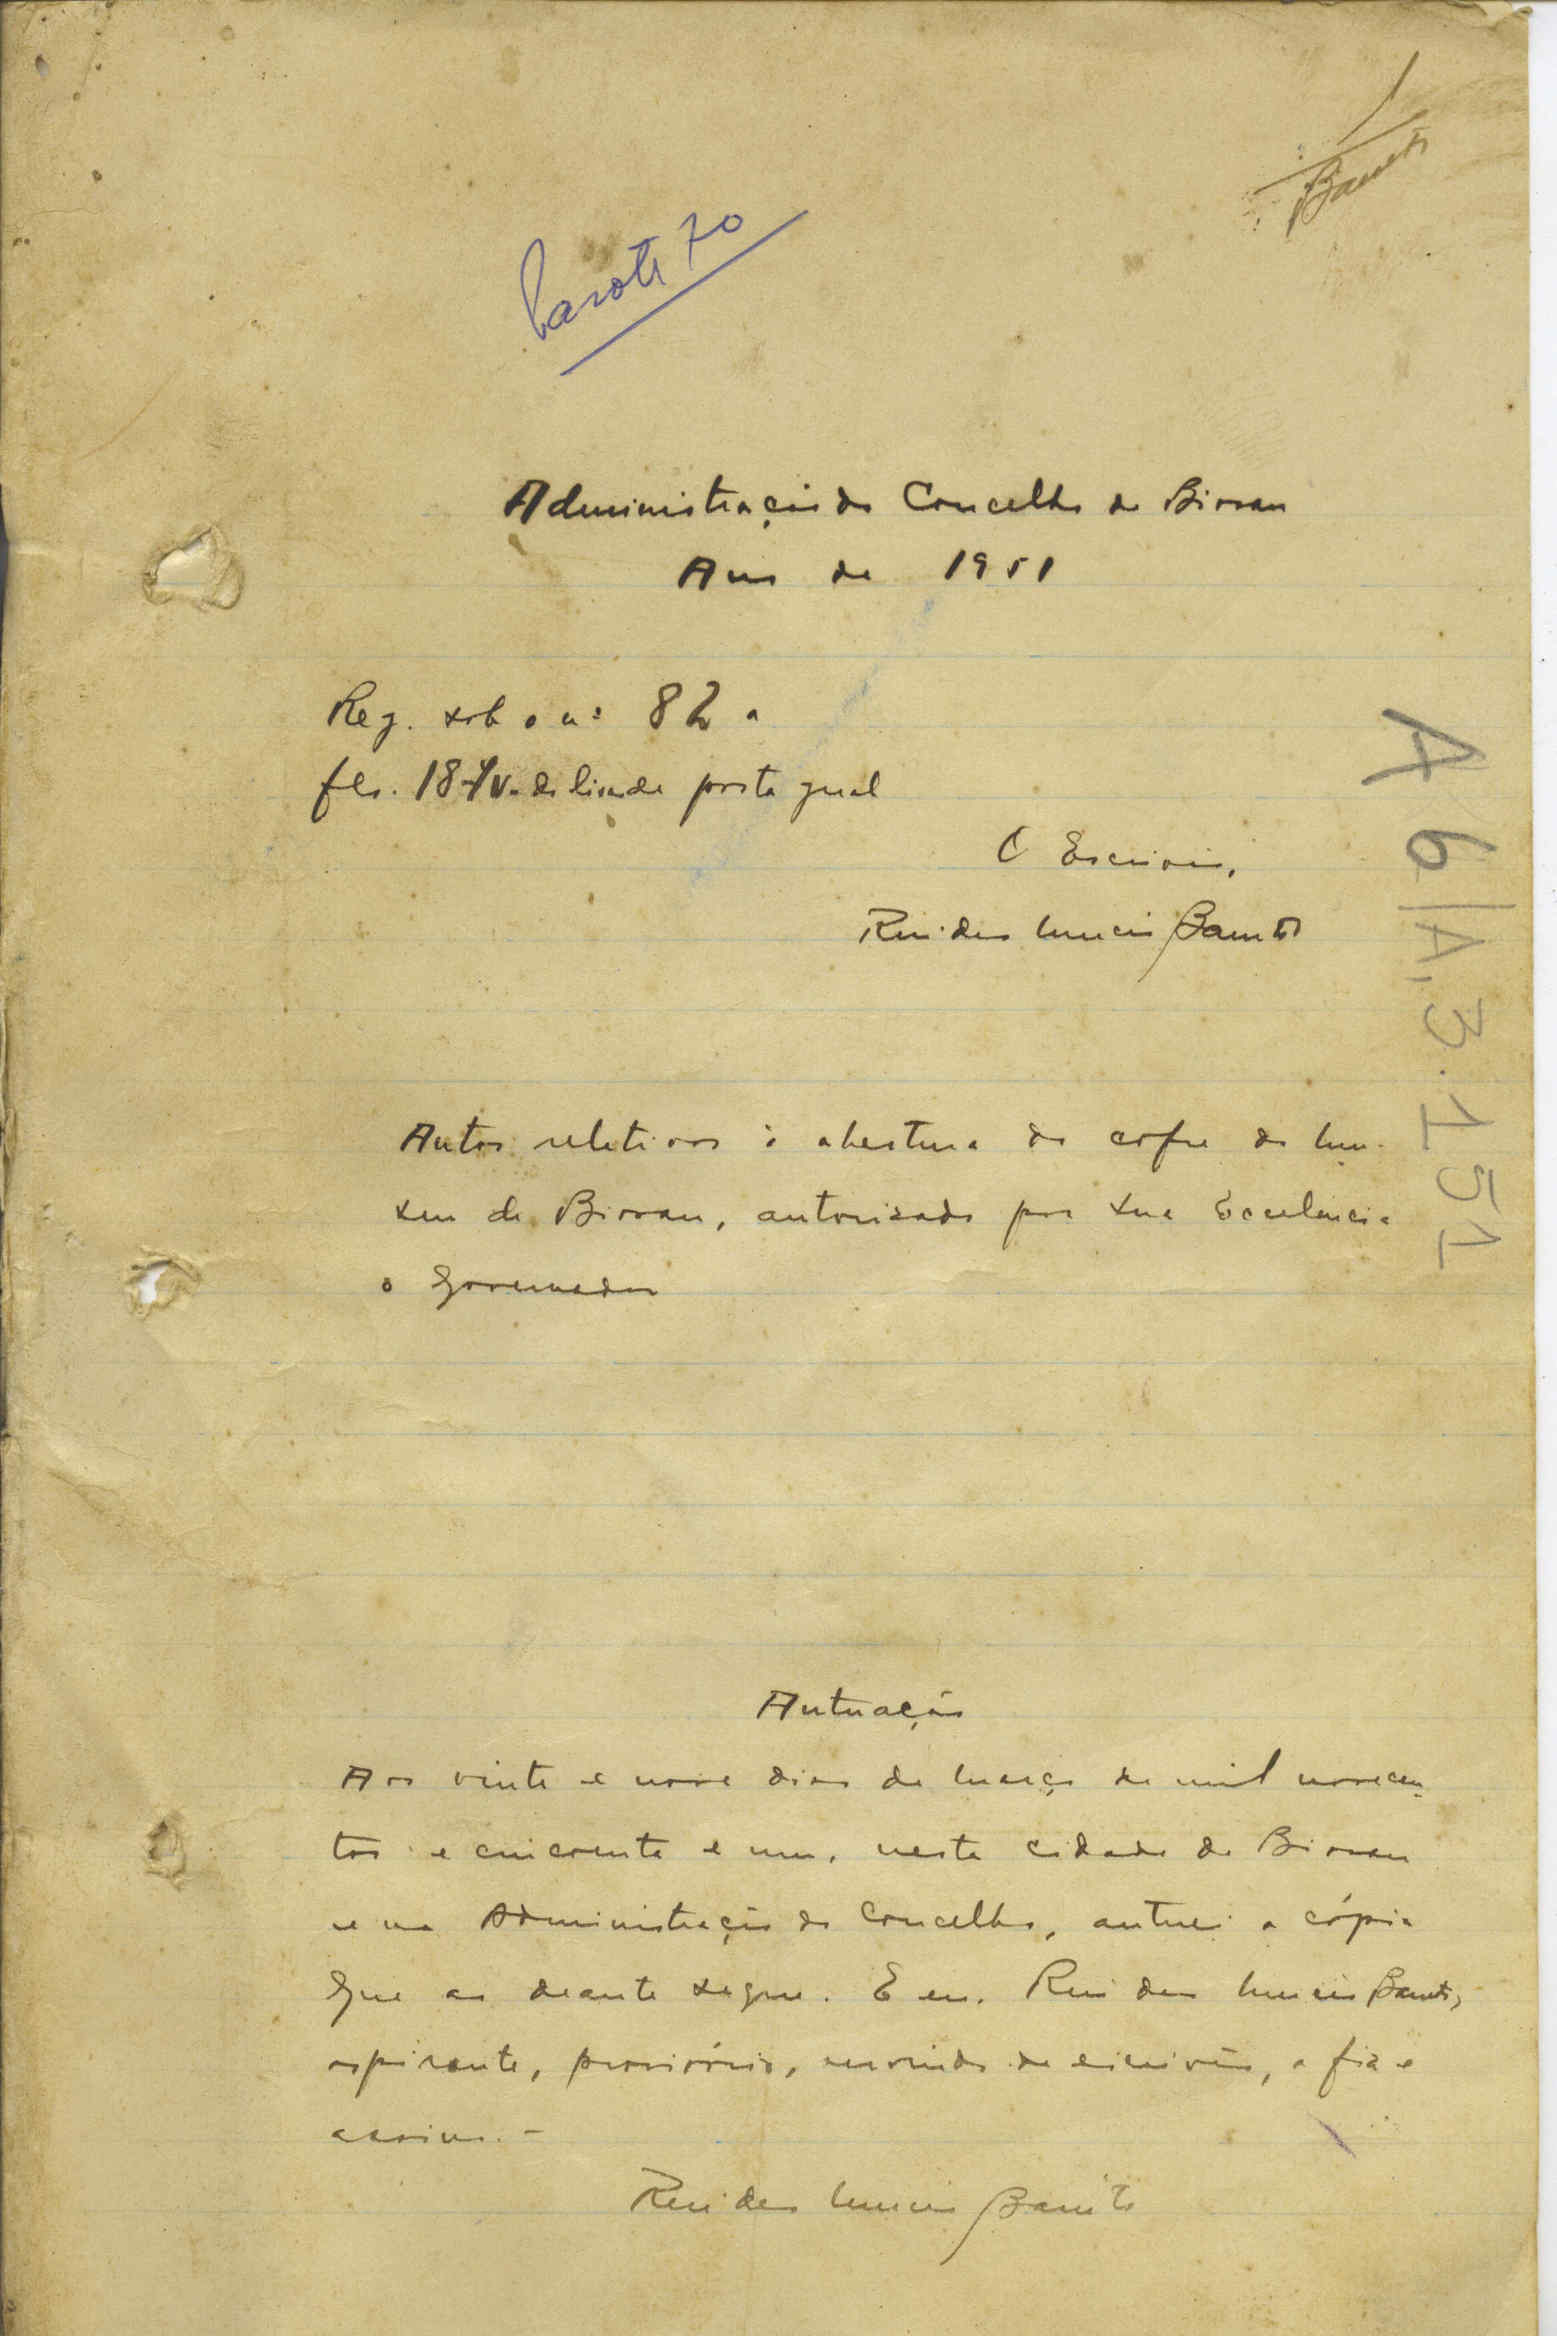 1
Barreto
Caixote 70
Administração do Concelho de Bissau
Ano de 1951
Reg. sob o nº 82 a
fls. 184v. do livro de porta gual
O Escrivão,
Barreto
A6/A,3.151
Autos relativos à abertura do cofre do Mu-
seu de Bissau, autorizado por Sua Excelência
o Governador
Autuação
Aos vinte e nove dias de Março de mil novecen-
tos e cincoenta e um, nesta cidade de Bissau
e na Administração do Concelho, autuei a cópia
que ao deante segue. E eu, Barreto,
aspirante, provisório, servindo de escrivão, o fiz e
assino. -
Barreto